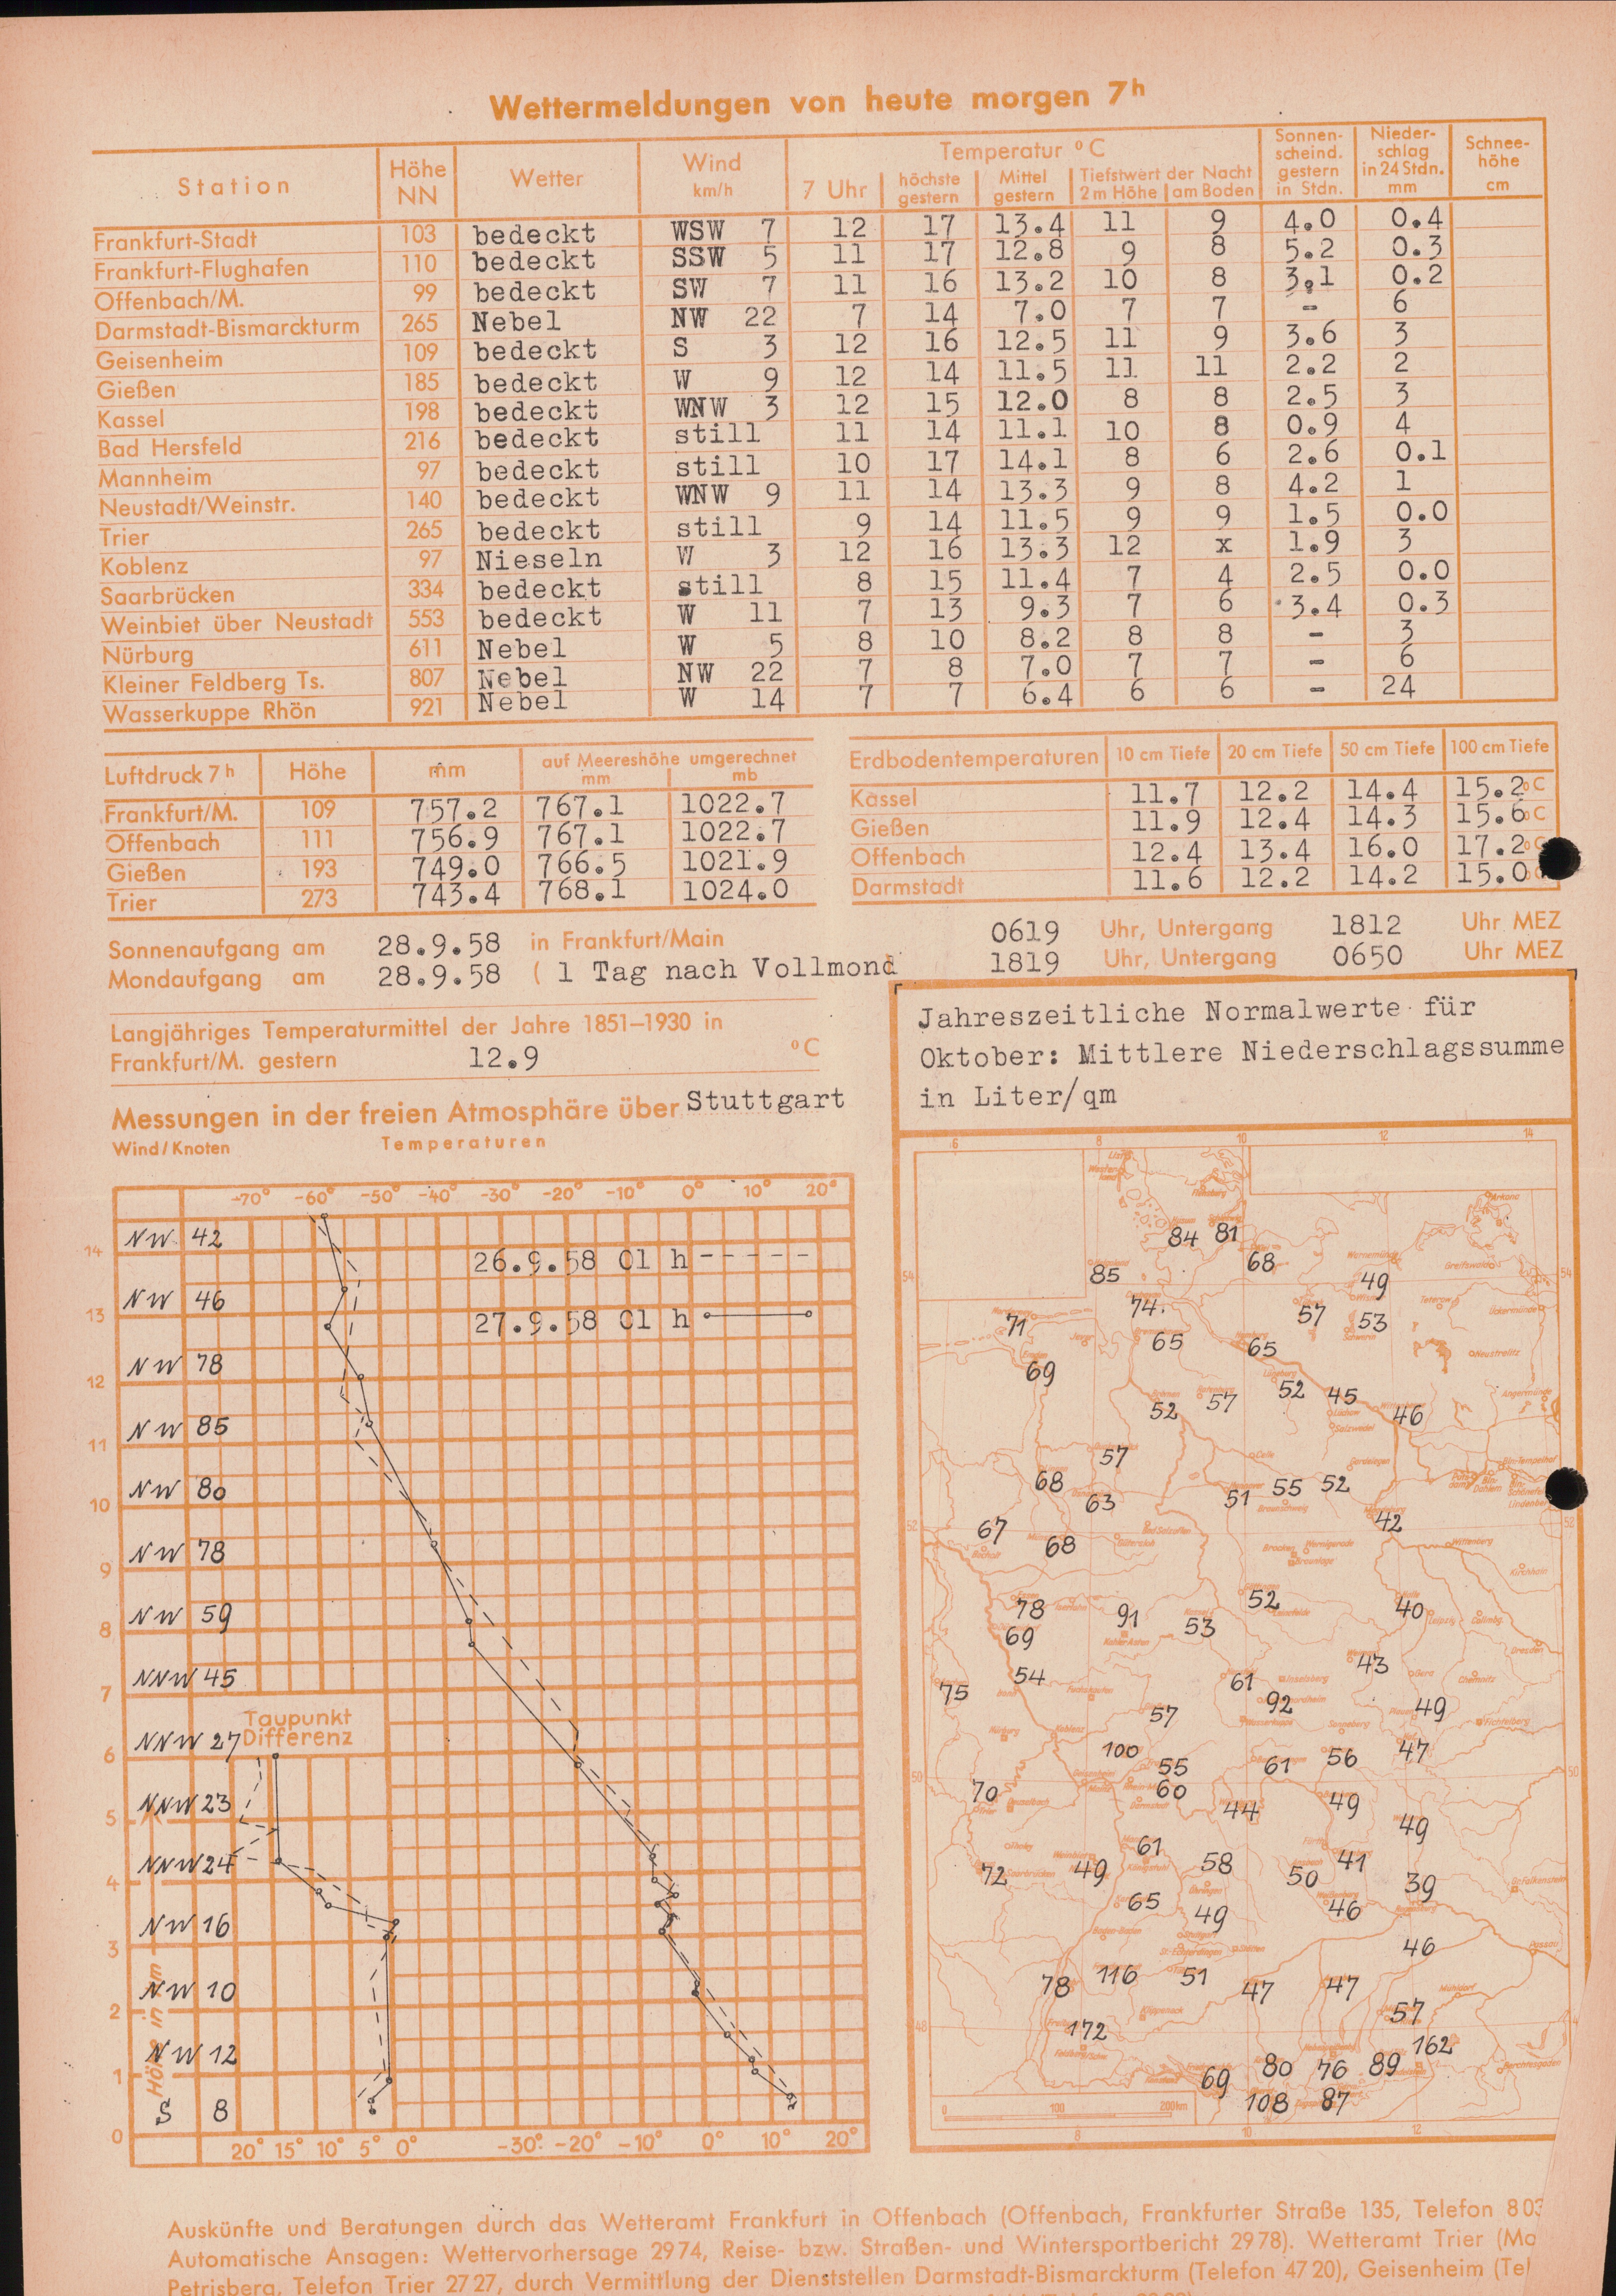 Wettermeldungen von heute morgen 7h
Station Höhe NN Wetter Wind km/h Temperatur °C 7 Uhr höchste gestern Mittel gestern Tiefstwert der Nacht 2 m Höhe am Boden Sonnenscheind. gestern in Stdn. Niederschlag in 24 Stdn. mm Schneehöhe cm
Frankfurt-Stadt 103 bedeckt WSW 7 12 17 13.4 11 9 4.0 0.4
Frankfurt-Flughafen 110 bedeckt SSW 5 11 17 12.8 9 8 5.2 0.3
Offenbach/M. 99 bedeckt SW 7 11 16 13.2 10 8 3.1 0.2
Darmstadt-Bismarckturm 265 Nebel NW 22 7 14 7.0 7 7 - 6
Geisenheim 109 bedeckt S 3 12 16 12.5 11 9 3.6 3
Gießen 185 bedeckt W 9 12 14 11.5 11 11 2.2 2
Kassel 198 bedeckt WNW 3 12 15 12.0 8 8 2.5 3
Bad Hersfeld 216 bedeckt still 11 14 11.1 10 8 0.9 4
Mannheim 97 bedeckt still 10 17 14.1 8 6 2.6 0.1
Neustadt/Weinstr. 140 bedeckt WNW 9 11 14 13.3 9 8 4.2 1
Trier 265 bedeckt still 9 14 11.5 9 9 1.5 0.0
Koblenz 97 Nieseln W 3 12 16 13.3 12 x 1.9 3
Saarbrücken 334 bedeckt still 8 15 11.4 7 4 2.5 0.0
Weinbiet über Neustadt 553 bedeckt W 11 7 13 9.3 7 6 3.4 0.3
Nürburg 611 Nebel W 5 8 10 8.2 8 8 - 3
Kleiner Feldberg Ts. 807 Nebel NW 22 7 8 7.0 7 7 - 6
Wasserkuppe Rhön 921 Nebel W 14 7 7 6.4 6 6 - 24
Luftdruck 7h Höhe mm auf Meereshöhe umgerechnet mm mb
Frankfurt/M. 109 757.2 767.1 1022.7
Offenbach 111 756.9 767.1 1022.7
Gießen 193 749.0 766.5 1021.9
Trier 273 743.4 768.1 1024.0
Erdbodentemperaturen 10 cm Tiefe 20 cm Tiefe 50 cm Tiefe 100 cm Tiefe
Kassel 11.7 12.2 14.4 15.2 °C
Gießen 11.9 12.4 14.3 15.6 °C
Offenbach 12.4 13.4 16.0 17.2 °C
Darmstadt 11.6 12.2 14.2 15.0
Sonnenaufgang am 28.9.58 in Frankfurt/Main 0619 Uhr, Untergang 1812 Uhr MEZ
Mondaufgang am 28.9.58 ( 1 Tag nach Vollmond 1819 Uhr, Untergang 0650 Uhr MEZ
Langjähriges Temperaturmittel der Jahre 1851–1930 in
Frankfurt/M. gestern 12.9 °C
Messungen in der freien Atmosphäre über Stuttgart
Wind/Knoten Temperaturen
-70° -60° -50° -40° -30° -20° -10° 0° 10° 20°
NW 42
14
26.9.58 01 h - - - - -
NW 46
13
27.9.58 01 h
NW 78
12
NW 85
11
NW 80
10
NW 78
9
NW 59
8
NNW 45
7
Taupunkt
NNW 27 Differenz
6
NNW 23
5
NNW 24
4
NW 16
3
NW 10
2
NW 12
1
S 8
0
Höhe in km
20° 15° 10° 5° 0° -30° -20° -10° 0° 10° 20°
Jahreszeitliche Normalwerte für
Oktober: Mittlere Niederschlagssumme
in Liter/qm
6 8 10 12 14
84 81
68
85 49
54 54
74. 57 53
71 65 65
69
52 57 52 45 46
57
68 63 51 55 52
42
67 68
52 52
78 91 53 52 40
69
54 61 43
75 57 92 49
100 55 61 56 47
50 50
70 60 44 49 49
61
72 49 58 50 41 39
65 49 46
46
78 116 51 47 47
57
48
172 162
69 80 76 89
108 87
0 100 200km
8 10 12
Auskünfte und Beratungen durch das Wetteramt Frankfurt in Offenbach (Offenbach, Frankfurter Straße 135, Telefon 8 03
Automatische Ansagen: Wettervorhersage 29 74, Reise- bzw. Straßen- und Wintersportbericht 29 78). Wetteramt Trier (Ma
Petrisberg, Telefon Trier 27 27, durch Vermittlung der Dienststellen Darmstadt-Bismarckturm (Telefon 47 20), Geisenheim (Tel